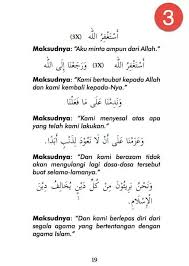 3
أَسْتَغْفِرُ اللّٰهَ (3X)
Maksudnya: "Aku minta ampun dari Allah."
أَسْتَغْفِرُ اللّٰهَ (3X) وَرَجَعْنَا إِلَى اللّٰهِ
Maksudnya: "Kami bertaubat kepada Allah
dan kami kembali kepada-Nya."
وَنَدِمْنَا عَلَى مَا فَعَلْنَا
Maksudnya: "Kami menyesal atas apa
yang telah kami lakukan."
وَعَزَمْنَا عَلَى أَنْ لَا نَعُوْدَ لِذَنْبٍ أَبَدًا.
Maksudnya: "Dan kami berazam tidak
akan mengulangi lagi dosa-dosa tersebut
buat selama-lamanya."
وَنَحْنُ بَرِيئُوْنَ مِنْ كُلِّ دِيْنٍ يُخَالِفُ دِيْنَ
الْإِسْلَامِ.
Maksudnya: "Dan kami berlepas diri dari
segala agama yang bertentangan dengan
agama Islam."
19